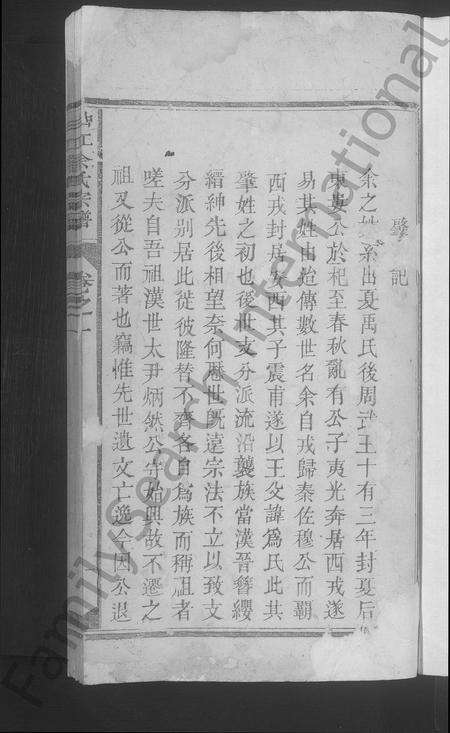 肇記
余之姓系出夏禹氏後周武王十有三年封夏后
東婁公於杞至春秋亂有公子夷光奔居西戎遂
易其姓由始傳數世名余自戎歸秦佐穆公而霸
西戎封居安西其子震甫遂以王父諱爲氏此其
肇姓之初也後世支分派流沿襲族當漢晉簪纓
縉紳先後相望奈何歷世旣遠宗法不立以致支
分派別居此從彼隆替不齊各自爲族而稱祖者
嗟夫自吾祖漢世太尹炳然公守始興故不遷之
祖又從公而著也竊惟先世遺文亡逸今因丞退
江余氏宗譜
卷之一
FamilySearch International